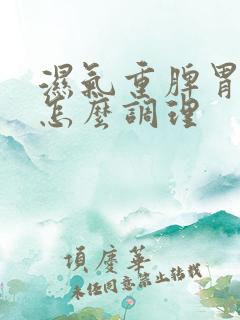 濕氣重脾胃
怎麼調理
項慶華
未经同意禁止转载